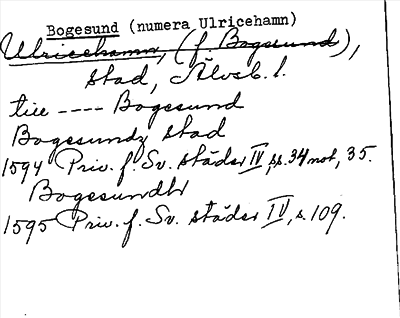 Bogesund (numera Ulricehamn)
Ulricehamn, (f. Bogesund),
stad, Älvsb. l.
tiee ---- Bogesund
Bogesundz stad
1594 Priv. f. Sv. städer IV, ss. 34 not, 35.
Bogesundh
1595 Priv. f. Sv. städer IV, s. 109.